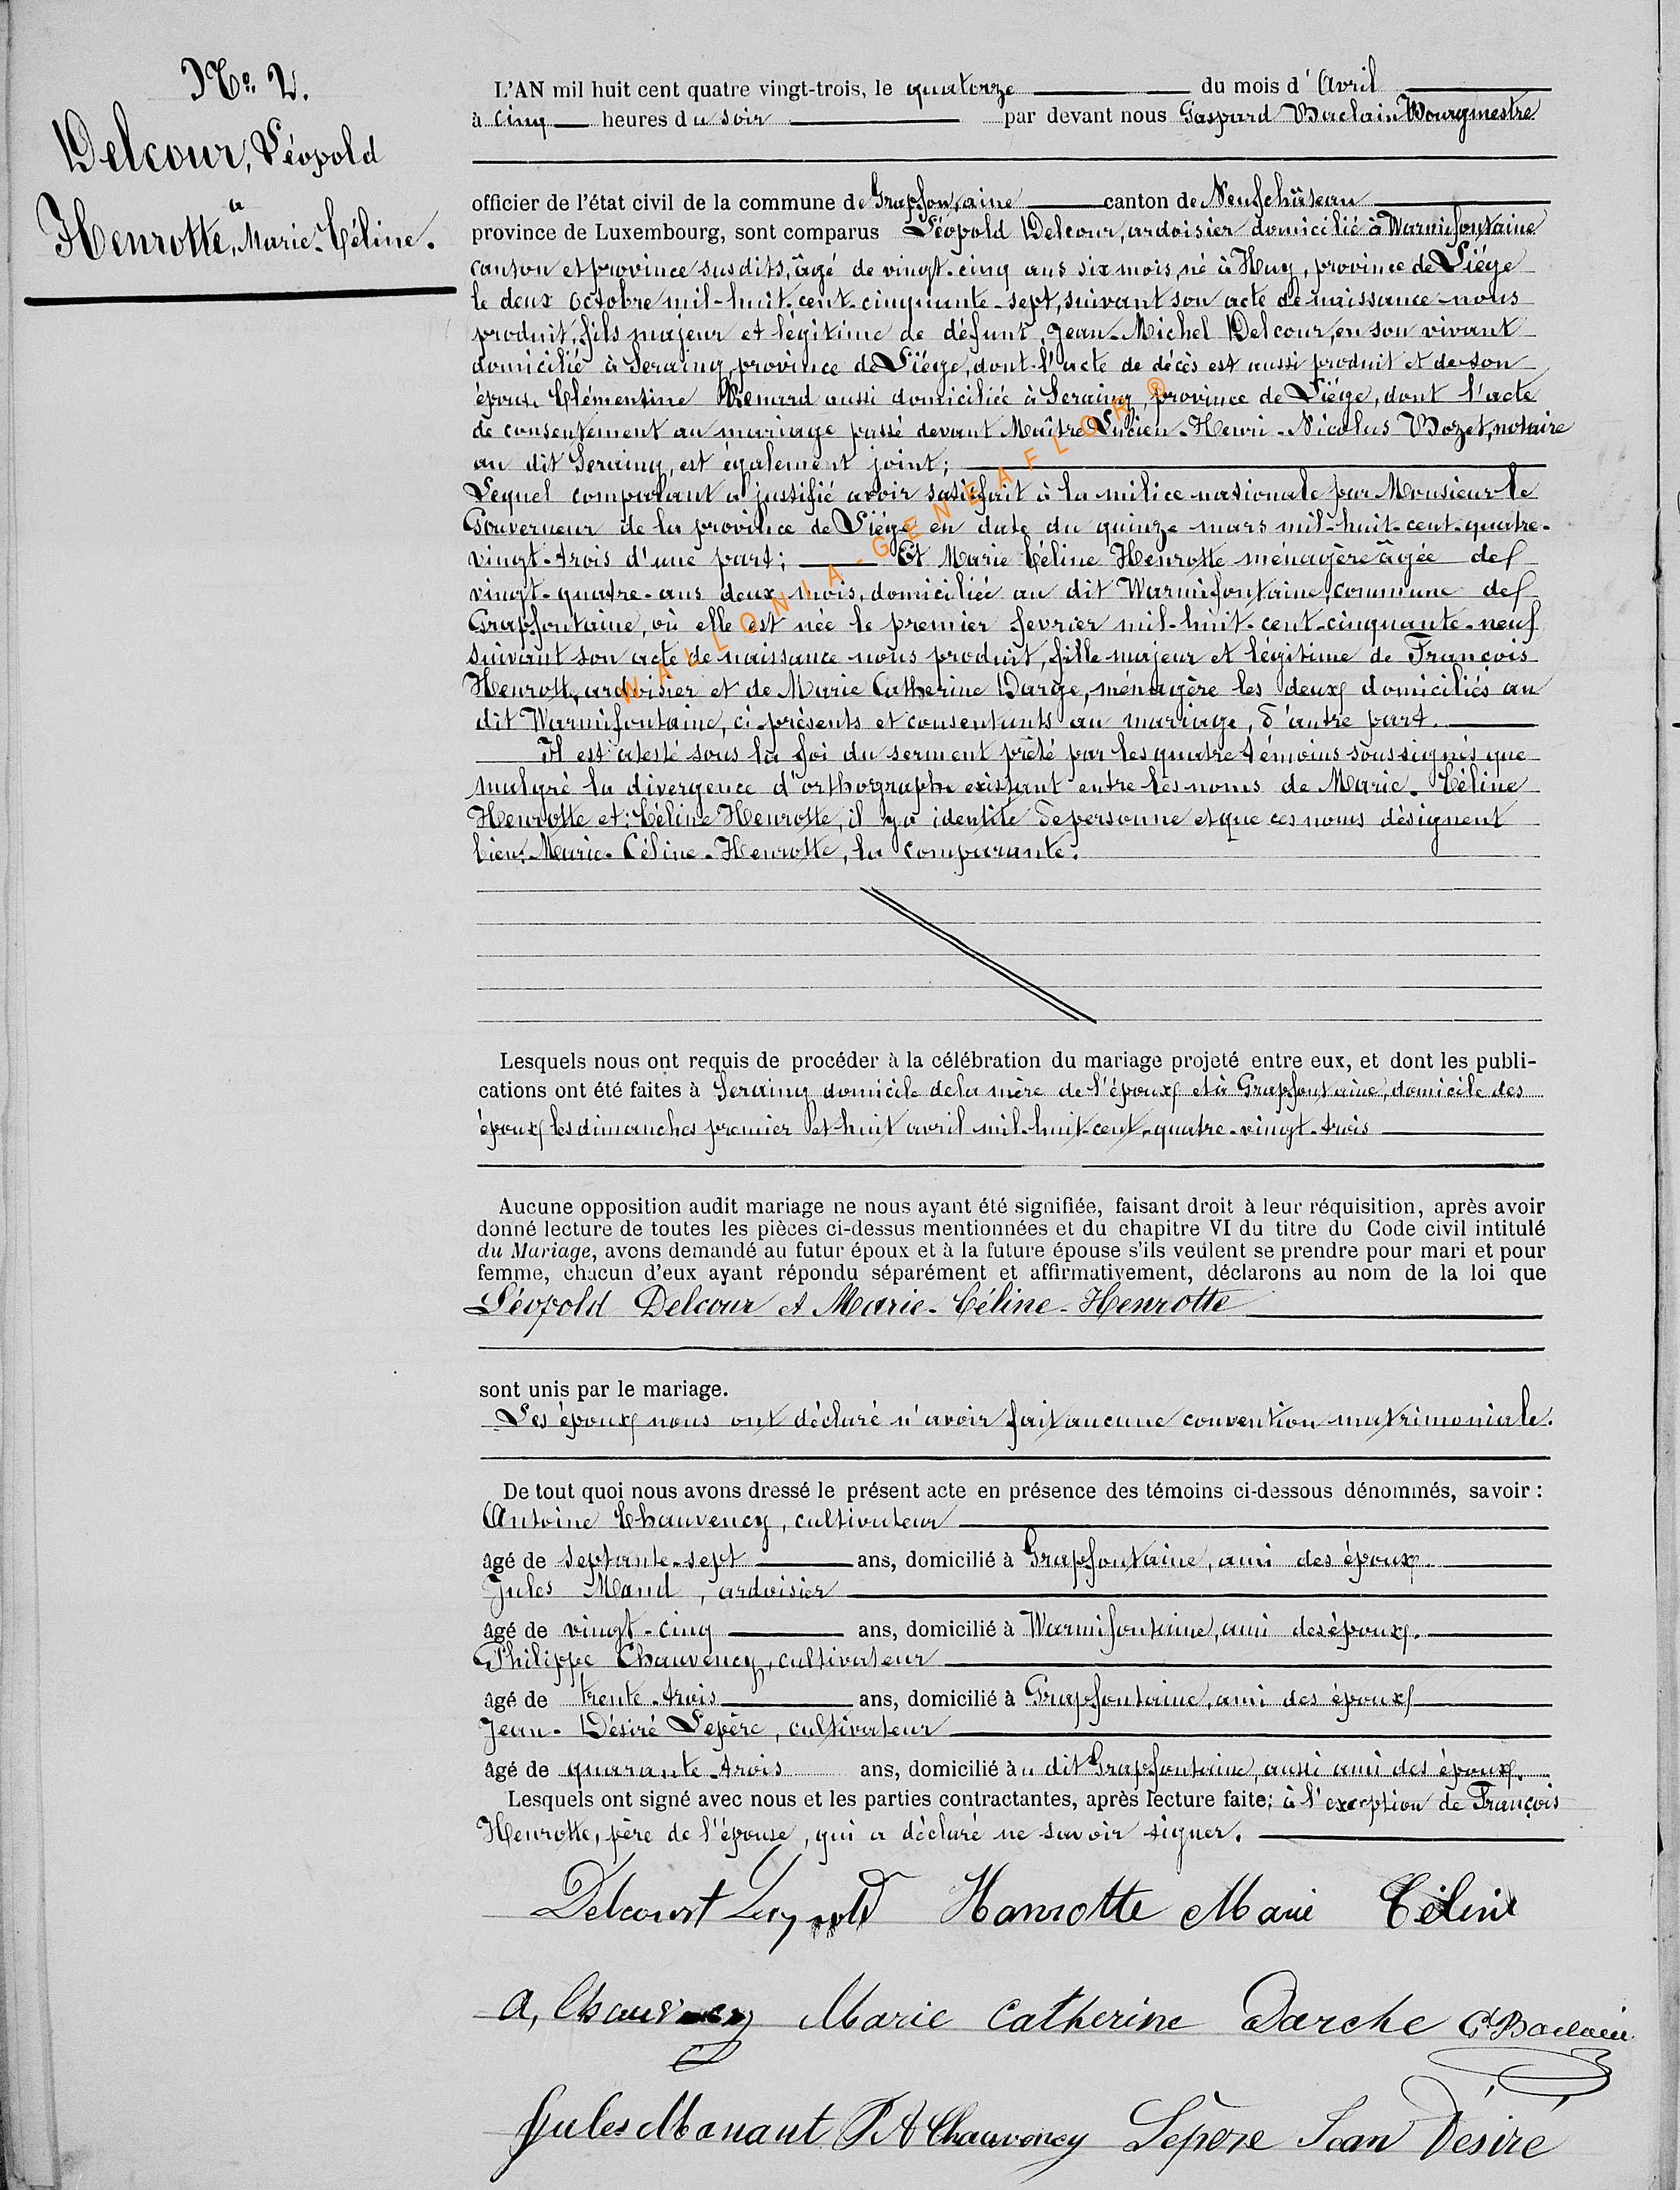 No. 2.
Delcour, Léopold
à
Henrotte, Marie-Céline.
L'AN mil huit cent quatre vingt-trois, le quatorze du mois d'Avril
à cinq heures du soir par devant nous Gaspard Baclain Bourgmestre
officier de l'état civil de la commune de Grapfontaine canton de Neufchâteau
province de Luxembourg, sont comparus Léopold Delcour, ardoisier domicilié à Warmifontaine
canton et province susdits, âgé de vingt-cinq ans six mois, né à Huy, province de Liége
le deux octobre mil-huit-cent-cinquante-sept, suivant son acte de naissance nous
produit, fils majeur et légitime de défunt, Jean-Michel Delcour, en son vivant
domicilié à Seraing, province de Liége, dont l'acte de décès est aussi produit et de son
épouse Clémentine Renard aussi domiciliée à Seraing, province de Liége, dont l'acte
de consentement au mariage passé devant Maître Lucien-Henri-Nicolas Bozet, notaire
au dit Seraing, est également joint;
Lequel comparant a justifié avoir satisfait à la milice nationale par Monsieur le
Gouverneur de la province de Liége en date du quinze mars mil-huit-cent-quatre-
vingt-trois d'une part; Et Marie Céline Henrotte ménagère âgée de
vingt-quatre-ans deux mois, domiciliée au dit Warmifontaine, commune de
Grapfontaine, où elle est née le premier fevrier mil-huit-cent-cinquante-neuf
suivant son acte de naissance nous produit, fille majeur et légitime de François
Henrott, ardoisier et de Marie Catherine Darge, ménagère les deux domiciliés au
dit Warmifontaine, ci-présents et consentants au mariage, d'autre part.
Il est atesté sous la foi du serment prêté par les quatre témoins soussignés que
malgré la divergence d'orthographe existant entre les noms de Marie-Céline
Henrotte et: Céline Henrotte, il y a identité de personne et que ces noms désignent
bien: Marie-Céline-Henrotte, la comparante.
WALLONIA-GENEAFLOR®
Lesquels nous ont requis de procéder à la célébration du mariage projeté entre eux, et dont les publi-
cations ont été faites à Seraing domicile de la mère de l'époux et à Grapfontaine, domicile des
époux les dimanches premier et huit avril mil-huit-cent-quatre-vingt-trois
Aucune opposition audit mariage ne nous ayant été signifiée, faisant droit à leur réquisition, après avoir
donné lecture de toutes les pièces ci-dessus mentionnées et du chapitre VI du titre du Code civil intitulé
du Mariage, avons demandé au futur époux et à la future épouse s'ils veulent se prendre pour mari et pour
femme, chacun d'eux ayant répondu séparément et affirmativement, déclarons au nom de la loi que
Léopold Delcour et Marie-Céline-Henrotte
sont unis par le mariage.
Les époux nous ont déclaré n'avoir fait aucune convention matrimoniale.
De tout quoi nous avons dressé le présent acte en présence des témoins ci-dessous dénommés, savoir :
Antoine Chauvency, cultivateur
âgé de septante-sept ans, domicilié à Grapfontaine, ami des époux.
Jules Mand, ardoisier
âgé de vingt-cinq ans, domicilié à Warmifontaine, ami des époux.
Philippe Chauvency, cultivateur
âgé de trente-trois ans, domicilié à Grapfontaine, ami des époux
Jean-Désiré Lepère, cultivateur
âgé de quarante-trois ans, domicilié au dit Grapfontaine, aussi ami des époux.
Lesquels ont signé avec nous et les parties contractantes, après lecture faite; à l'exception de François
Henrotte, père de l'épouse, qui a déclaré ne savoir signer.
Delcourt Leopold Hanrotte Marie Céline
A, Chauvency Marie Catherine Darche G. Baclain
Jules Manant P A Chauvency Lepère Jean Désiré